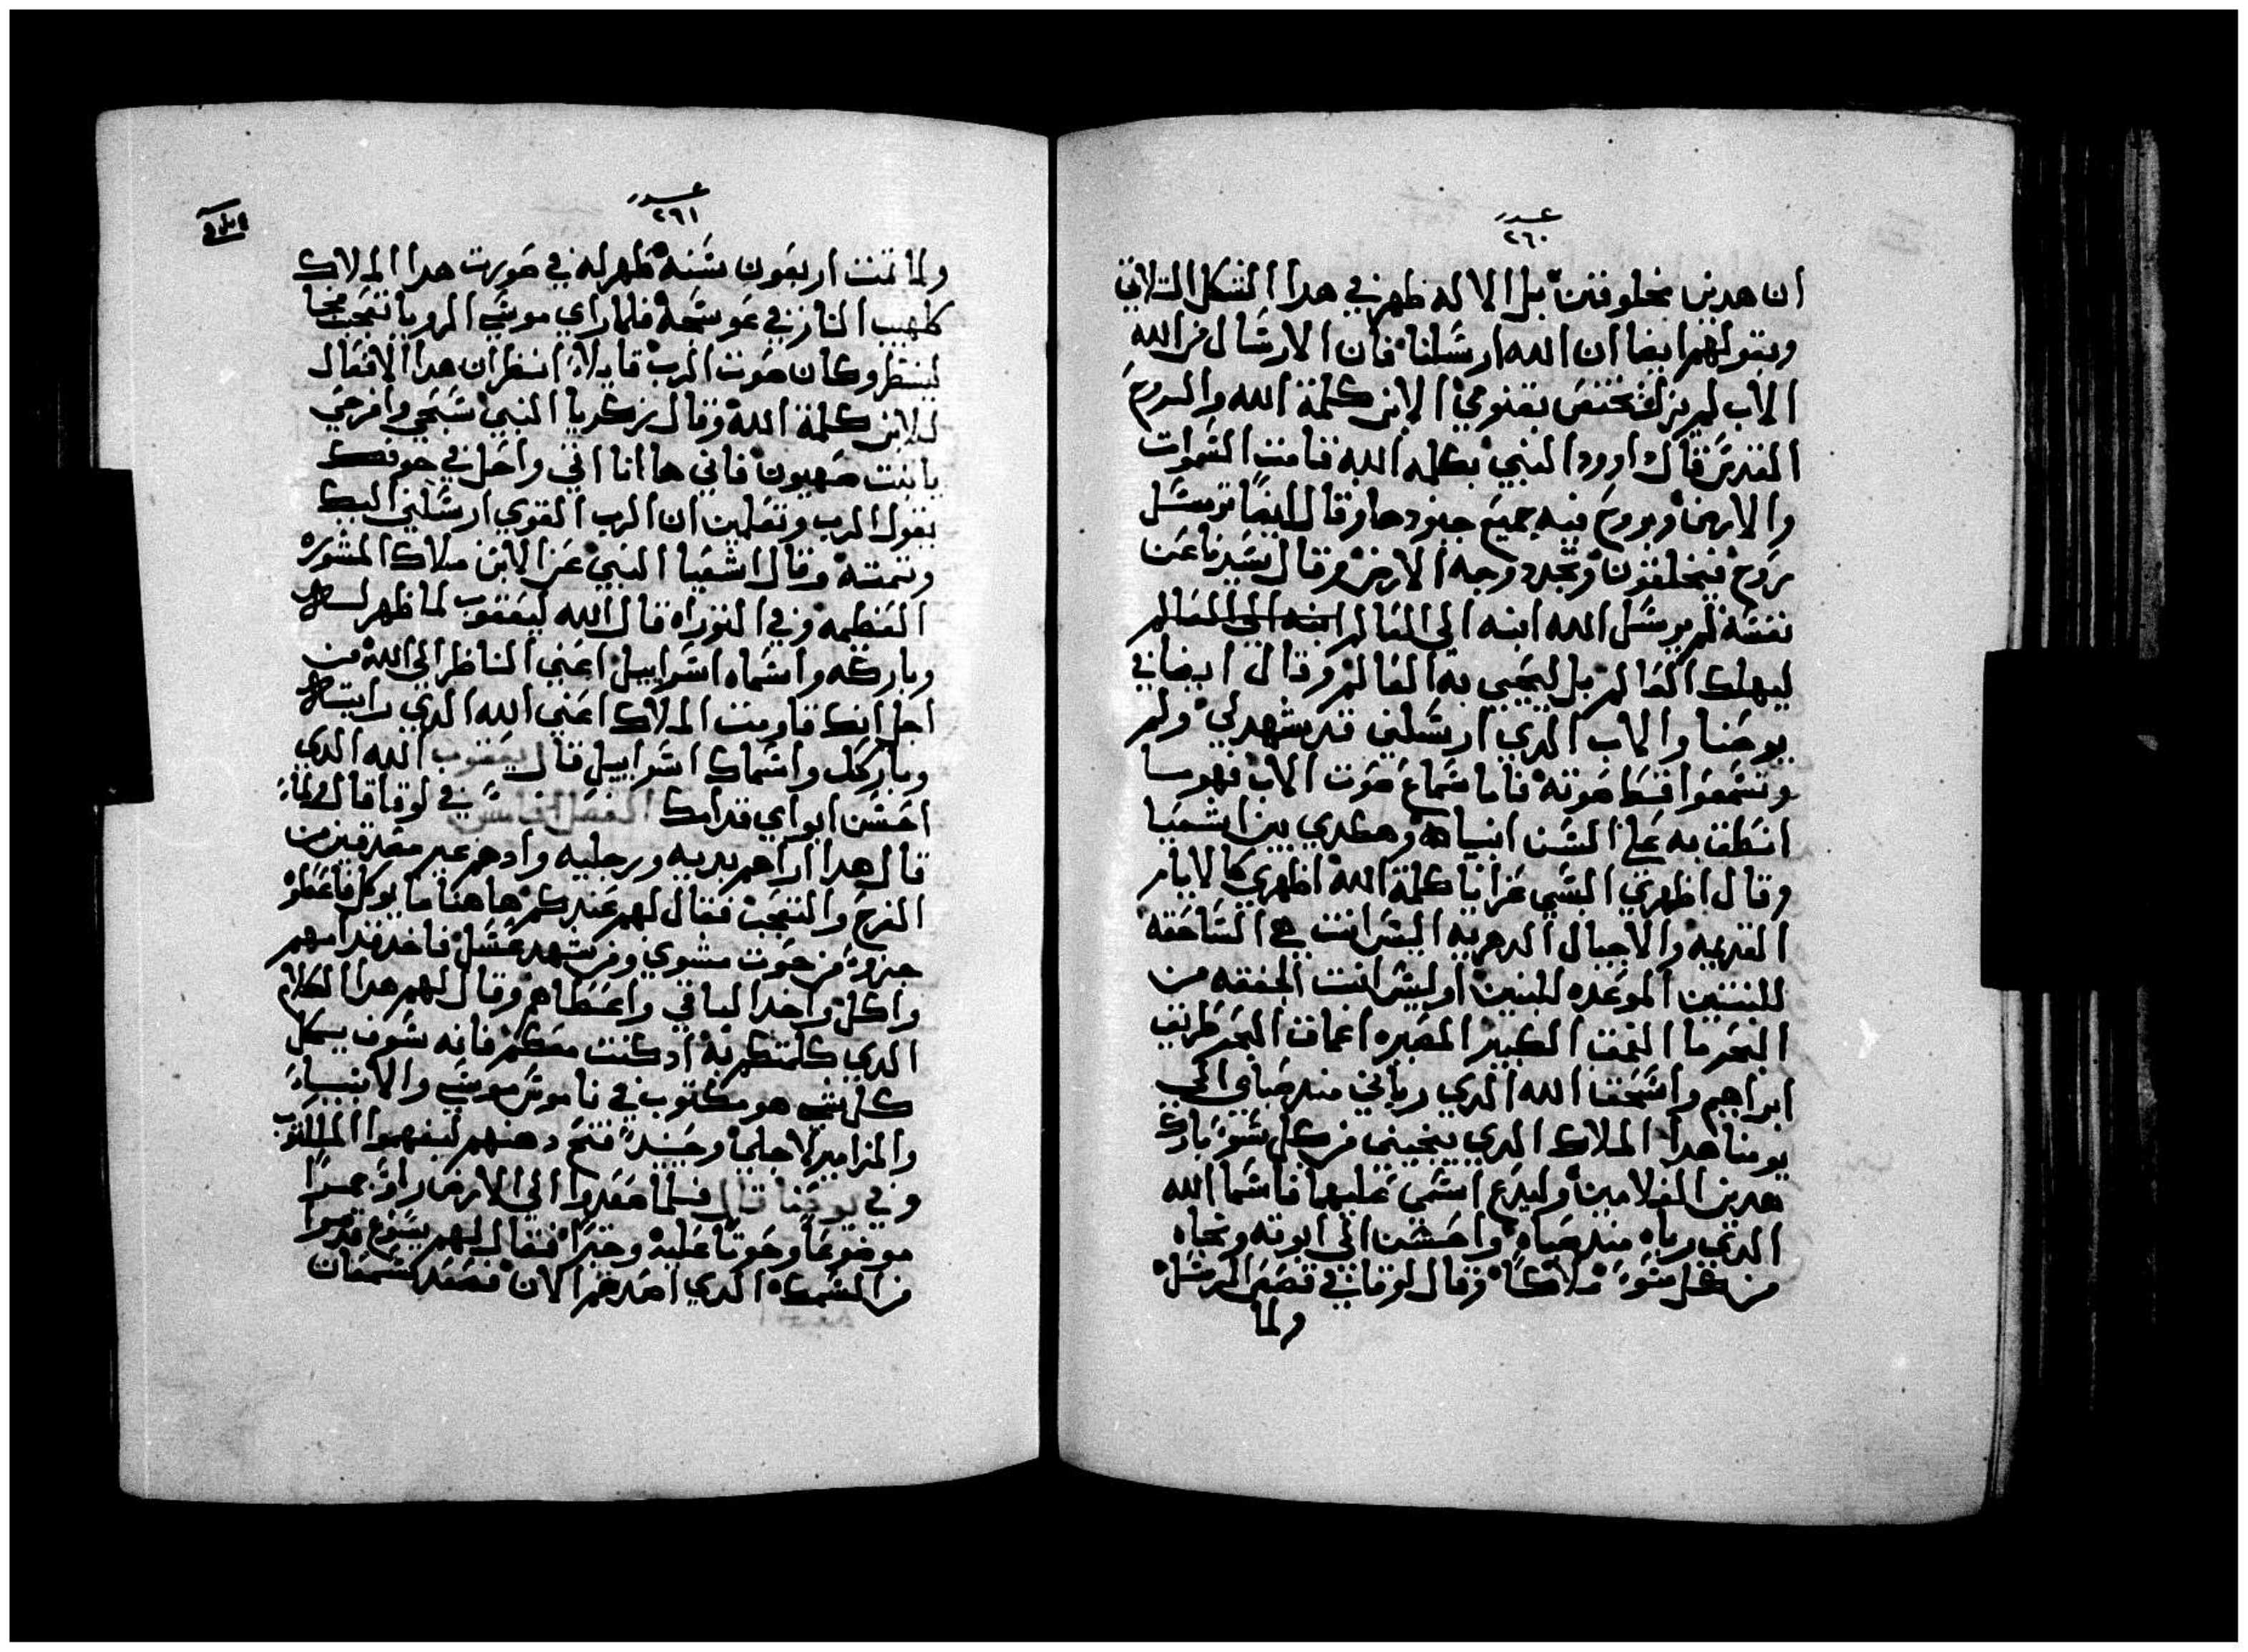 عدد
٢٦٠
ان هدين مخلوقين بل الاله ظهر في هدا الشكل التلاتي
وبقولهم ايضا ان الله ارسلنا فان الارسال من الله
الاب لم يزل مختص بقنومي الابن كلمة الله والروح
القدس قال داوود النبي بكلمه الله قامت السموات
والارض وبروح فيه جميع جنودها وقال ايضا ترسل
روح فيخلقون وتجدد وجه الارض وقال سيدنا عن
نفسه لم يرسل الله ابنه الى العالم ابنه الى العالم
ليهلك العالم بل ليحيي به العالم وقال ايضا في
يوحنا والاب الدي ارسلني قد يشهد لي ولم
وتسمعوا قط صوته فاما سماع صوت الاب فهو ما
انطق به على السن انبياه وهكدي بين اشعيا
وقال اظهري البسي عزا يا كلمة الله اظهري كالايام
القديمه والاجيال الدهريه اليس انت هي الساحقه
للتنين الموعده للبنين اوليس انت المجففه من
البحر ما الغمق الكبير المصيره اعماق البحر طريق
ابراهيم واسحق الله الدي رباني مند صباي الي
يومنا هدا الملاك الدي ينجيني من كل سو بارك
هدين الغلامين وليدع اسمي عليهما فاسما الله
الدي رباه مند صباه واحسن الي ابوته ونجاه
من كل سو ملاكا وقال لوقا في قصص الرسل
ولما
عدد
٢٦١
ولما تمت اربعون سنه ظهر له في صورت هدا الملاك
كلهيب النار في عوسجه فلما راي موسي الرويا تعجب فجا
لينظر وكان صوت الرب قايلا انظر ان هدا الافعال
للابن كلمة الله وقال زكريا النبي سبحي وافرحي
يا بنت صهيون فاني ها انا اتي واحل في جوفك
يقول الرب وتعلمين ان الرب القوي ارسلني اليك
وتمته وقال اشعيا النبي عن الابن ملاك المشوره
العظيمه وفي التوراه قال الله ليعقوب لما ظهر له
وباركه واسماه اسراييل اعني الناظر الى الله من
اجل انك قاومت الملاك اعني الله الدي رايته
وباركك واسماك اسراييل قال يعقوب الله الدي
احسن ابواي قدامك في لوقا قال ولما
قال هدا اراهم يديه ورجليه واد هم غير مصدقين من
الفرح والتعجب فقال لهم عندكم هاهنا ما يوكل فاعطوه
جزوا من حوت مشوي ومن شهد عسل فاخد قدامهم
واكل واخد الباقي واعطاهم وقال لهم هدا الكلام
الدي كلمتكم به اد كنت معكم فانه سوف يكمل
كل شي هو مكتوب في ناموس موسي والانبياء
والمزامير لاجلي وحينيد فتح دهنهم ليفهموا المكتوب
وفي يوحنا قال فلما صعدوا الي الارض راوا جمرا
موضوعا وحوتا عليه وخبزا فقال لهم يسوع قدموا
من السمك الدي اصدتم الان فصعد سمعان